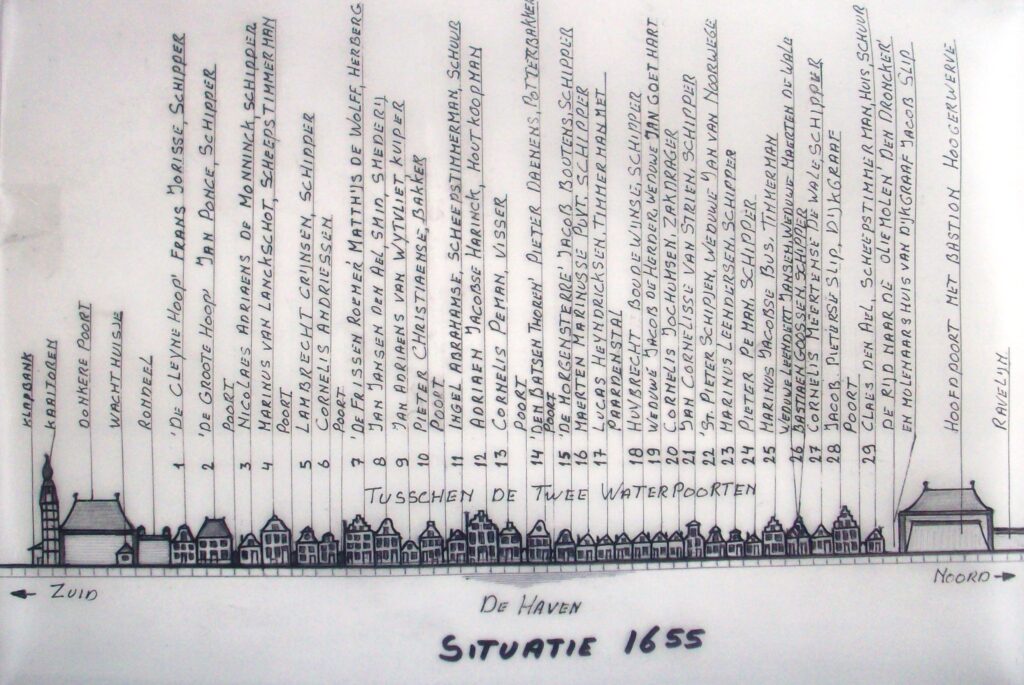 KLAPBANK
KAAITOREN
DONKERE POORT
WACHTHUISJE
RONDEEL
1 'DE CLEYNE HOOP' FRANS JORISSE, SCHIPPER
2 'DE GROOTE HOOP' JAN PONCE, SCHIPPER
POORT
3 NICOLAES ADRIAENS DE MONNINCK, SCHIPPER
4 MARINUS VAN LANCKSCHOT, SCHEEPSTIMMERMAN
POORT
5 LAMBRECHT CRIJNSEN, SCHIPPER
6 CORNELIS ANDRIESSEN
POORT
7 'DE FRISSEN ROEMER' MATTHIJS DE WOLFF, HERBERG
8 JAN JANSEN DEN AEL, SMID, SMEDERIJ
9 JAN ADRIAENS VAN WYTVLIET KUIPER
10 PIETER CHRISTIAENSE, BAKKER
POORT
11 INGEL ABRAHAMSE, SCHEEPSTIMMERMAN, SCHUUR
12 ADRIAEN JACOBSE HARINCK, HOUTKOOPMAN
13 CORNELIS PEMAN, VISSER
POORT
14 'DEN BATSEN THOREN' PIETER DAENENS, POTTERBAKKER
POORT
15 'DE MORGENSTERRE' JACOB BOUTENS, SCHIPPER
16 MAERTEN MARINUSSE PVT, SCHIPPER
17 LUCAS HEYNDRICKSEN TIMMERMAN MET
PAARDENSTAL
18 HUYBRECHT BOUDEWIJNSE, SCHIPPER
19 WEDUWE JACOB DE HERDER, WEDUWE JAN GOET HART
20 CORNELIS JOCHUMSEN, ZAKDRAGER
21 JAN CORNELISSE VAN STRIEN, SCHIPPER
22 'ST. PIETER SCHIP'EN, WEDUWE JAN VAN NOORWEGE
23 MARINUS LEENDERSEN, SCHIPPER
24 PIETER PEMAN, SCHIPPER
25 MARINUS JACOBSE BUS, TIMMERMAN
WEDUWE LEENDERT JANSEN, WEDUWE MAERTEN DE WALE
26 BASTIAEN GOOSSEN, SCHIPPER
27 CORNELIS MEERTENSE DE WALE, SCHIPPER
28 JACOB PIETERSE SLIP, DIJKGRAAF
POORT
29 CLAES DEN AEL, SCHEEPSTIMMERMAN, HUIS, SCHUUR
DE RIJD NAAR DE OLIEMOLEN 'DEN DRONCKER'
EN MOLENAARSHUIS VAN DIJKGRAAF JACOB SLIP
HOOFDPOORT MET BASTION HOOGERWERVE
RAVELIJN
TUSSCHEN DE TWEE WATERPOORTEN
← ZUID
NOORD →
DE HAVEN
SITUATIE 1655